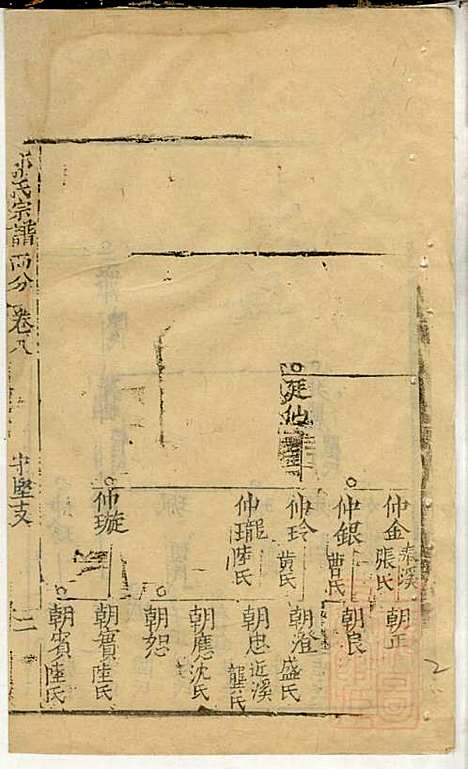 氏宗譜
卷八
中堅支
二
廷仙
仲金 張氏
仲銀 曹氏
仲玲 黄氏
仲瓏 陸氏
仲璇
朝正 春溪
朝良
朝澄 盛氏
朝忠 近溪 龔氏
朝應 沈氏
朝恕
朝實 陸氏
朝賓 陸氏
2